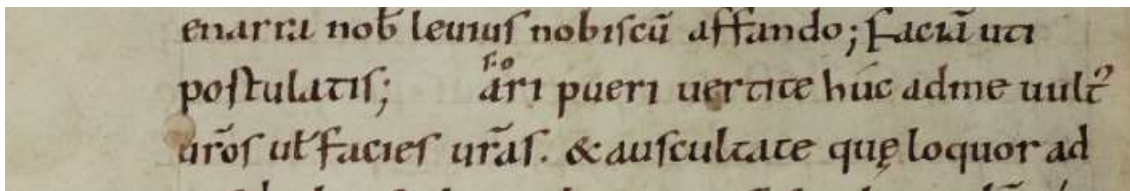 enarra nob̄ leuius nobiscū affando; Faciā uti
s. o
postulatis; ari pueri uertite huc adme uult᾽
ur̄os ut̄ facies ur̄as. & auscultate quę loquor ad